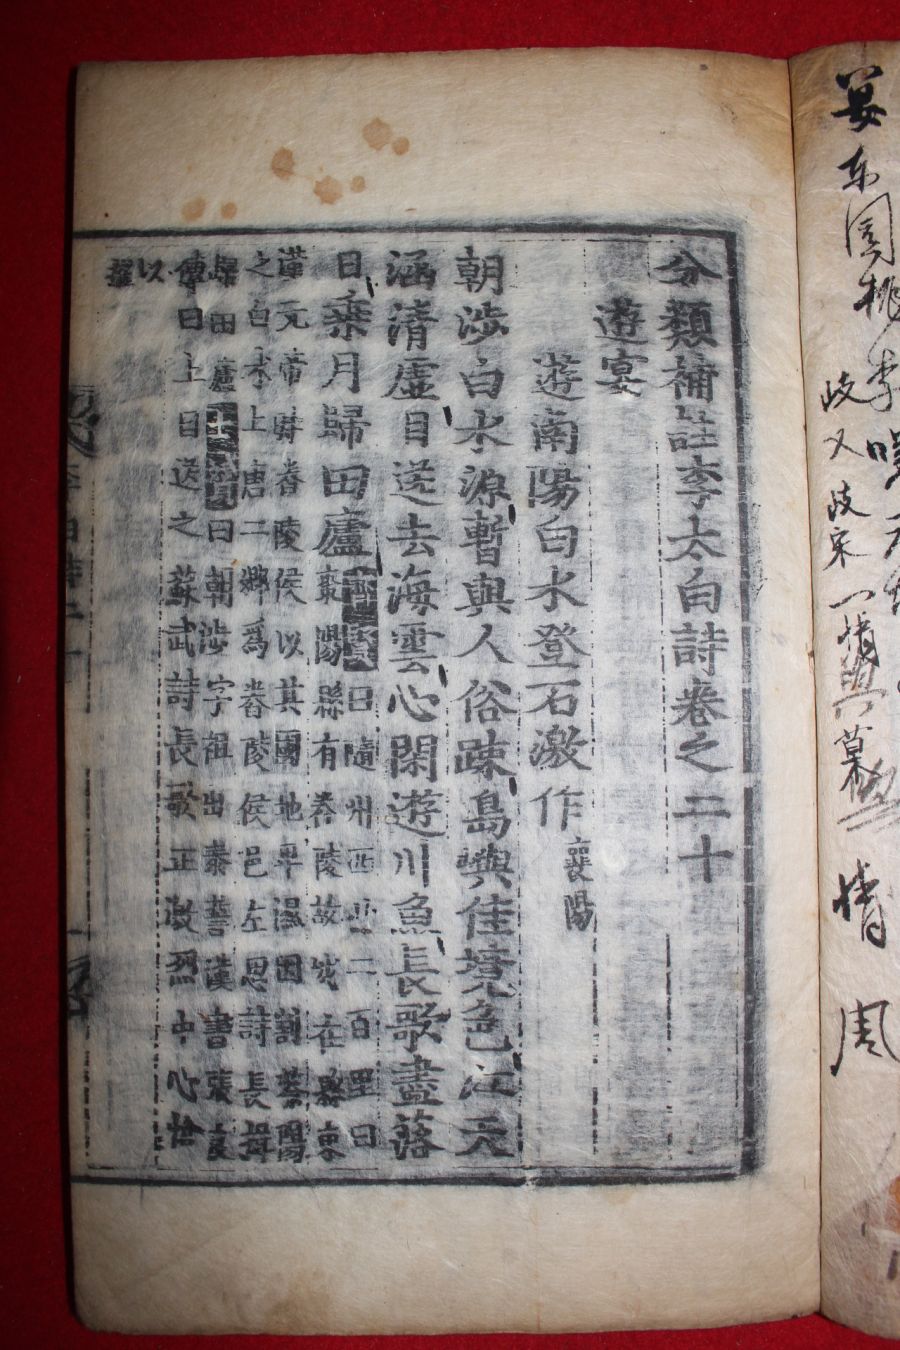 分類補註李太白詩卷之二十
遊宴
遊南陽白水登石激作襄陽
朝涉白水源暫與人俗疎島嶼佳境色江天
涵清虛目送去海雲心閑遊川魚長歌盡落
日乗月歸田廬
曰隨州西北二百里曰
襄陽縣有舂陵故城在棗
漢元帝時舂陵侯以其國地卑濕因割蔡陽
之白水上唐二鄉爲舂陵侯邑左思詩長揖
歸田廬 曰朝涉字祖出泰誓漢書張良
傳曰上目送之蘇武詩長歌正激烈中心愴
以
摧
宴
东
園
桃
李
岐
又
情
周